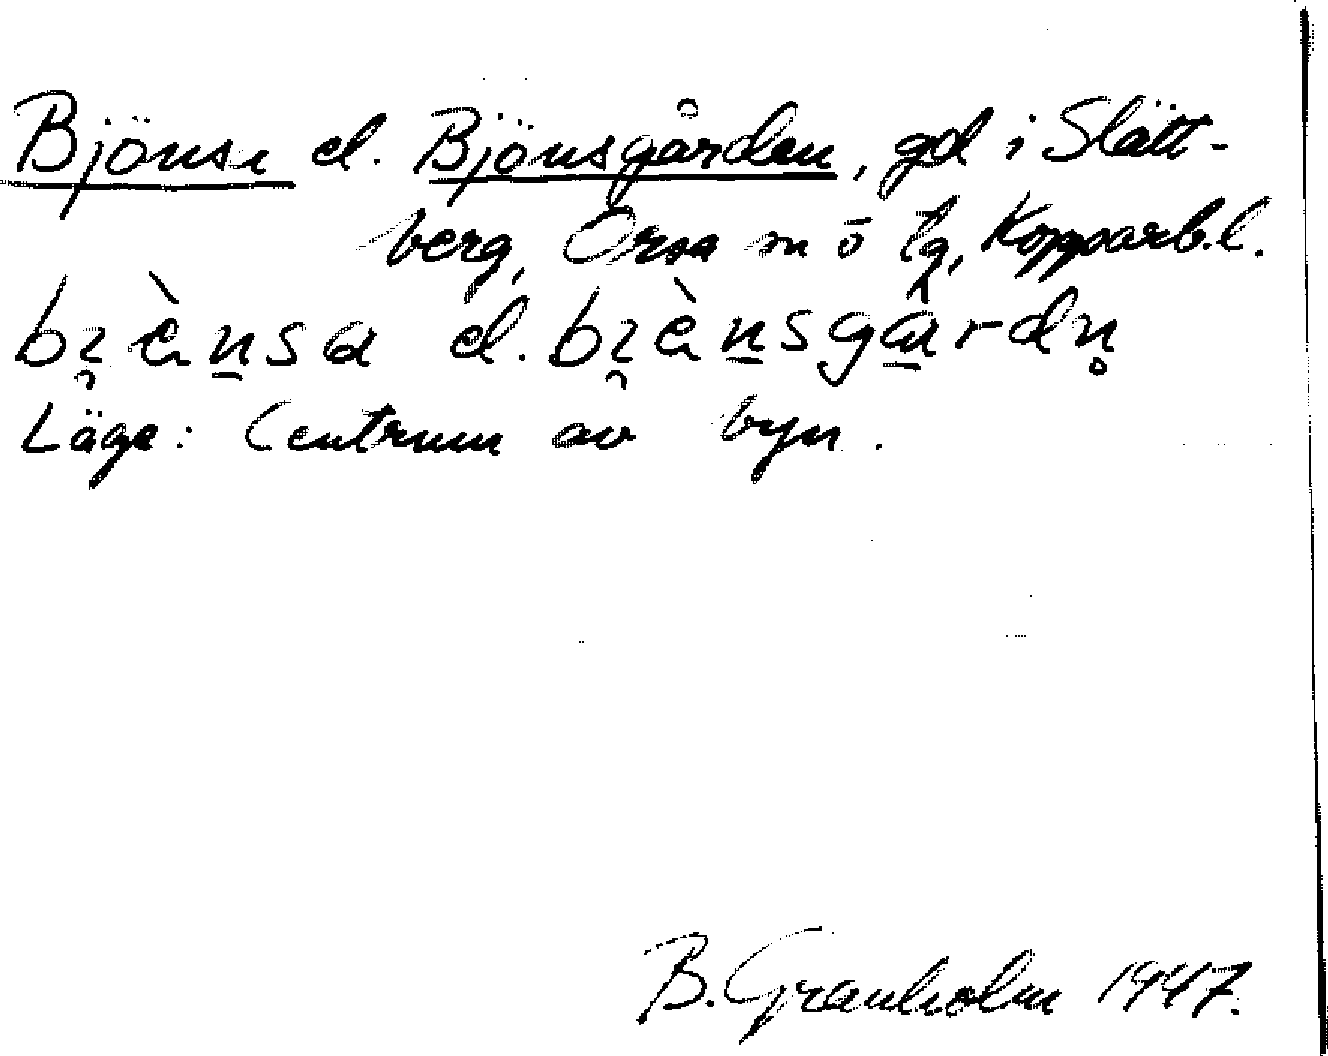 Bjönsa el. Bjönsgården, gd i Slätt-
berg, Orsa sn ö tg, Kopparb.l.
bi̯ὲn̲sa el. bi̯ὲn̲sgårdn̥
Läge: Centrum av byn.
B. Granholm 1947.